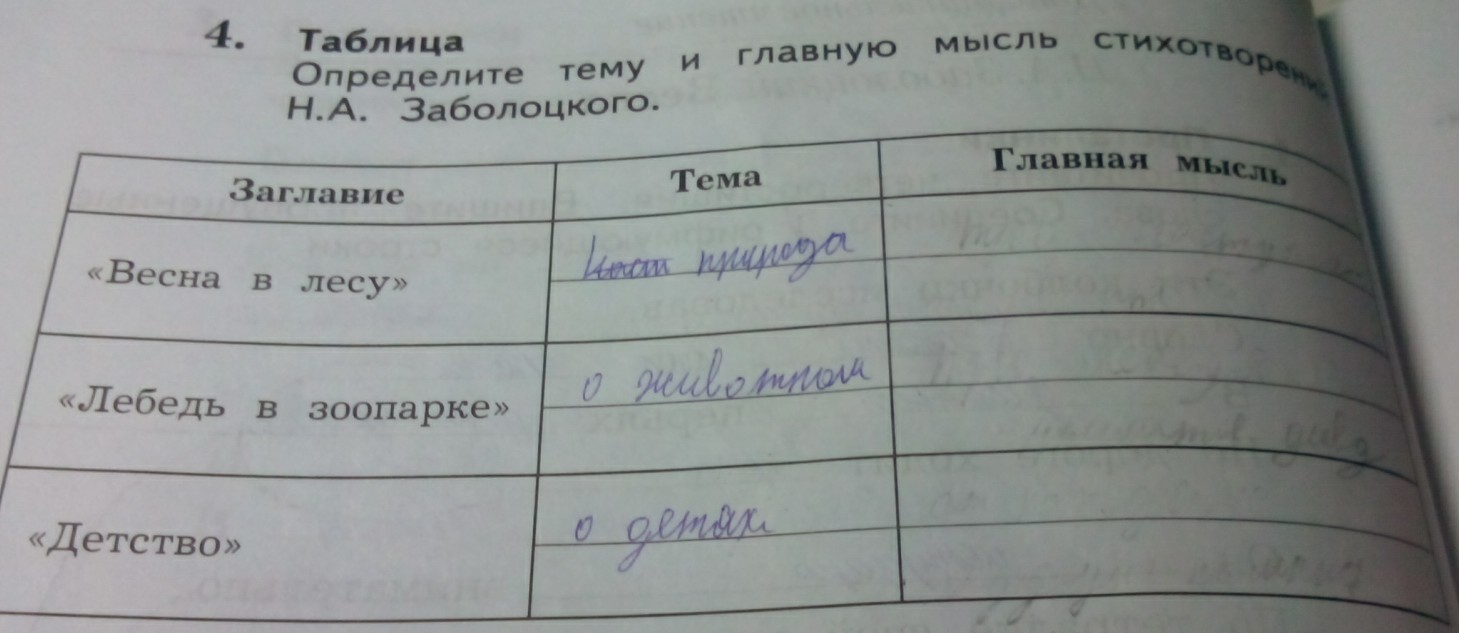 4. Таблица
Определите тему и главную мысль стихотворений
Н.А. Заболоцкого.
Заглавие Тема Главная мысль
«Весна в лесу» природа
«Лебедь в зоопарке» о животном
«Детство» о детях